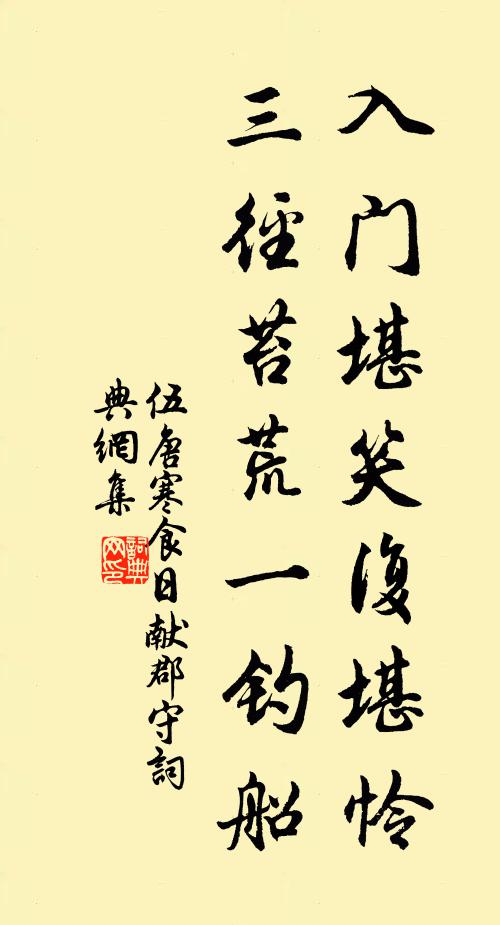 入门堪笑復堪怜
三徑苔荒一钓船
伍唐寒食日献郡守詞
典網集
詞典
网印